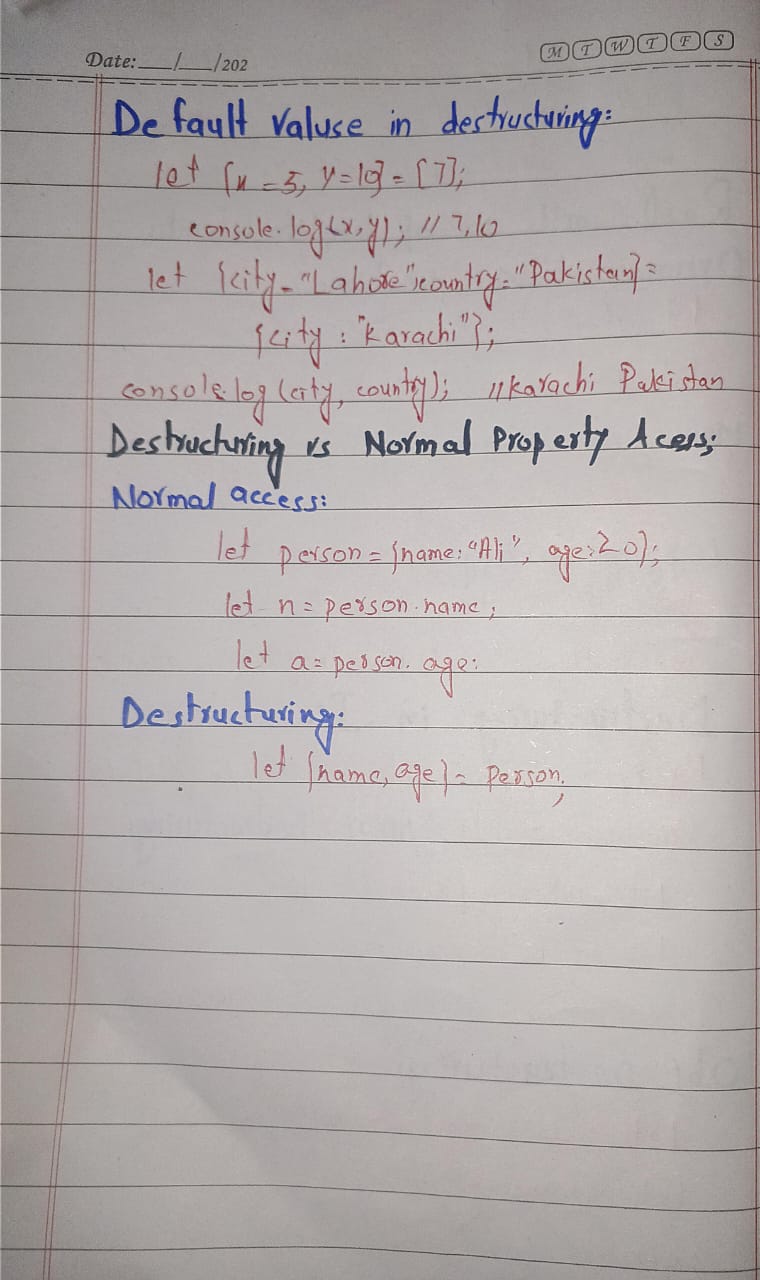 Date: __/__/202
M T W T F S
Default Valuse in destructuring:
let [x = 5, y = 10] = [7];
console.log(x, y); // 7, 10
let {city = "Lahore", country = "Pakistan} =
{city : "Karachi"};
console.log (city, country); //Karachi Pakistan
Destructuring vs Normal Property Acess;
Normal access:
let person = {name: "Ali", age: 20};
let n = person.name;
let a = person.age:
Destructuring:
let {name, age} = Person;